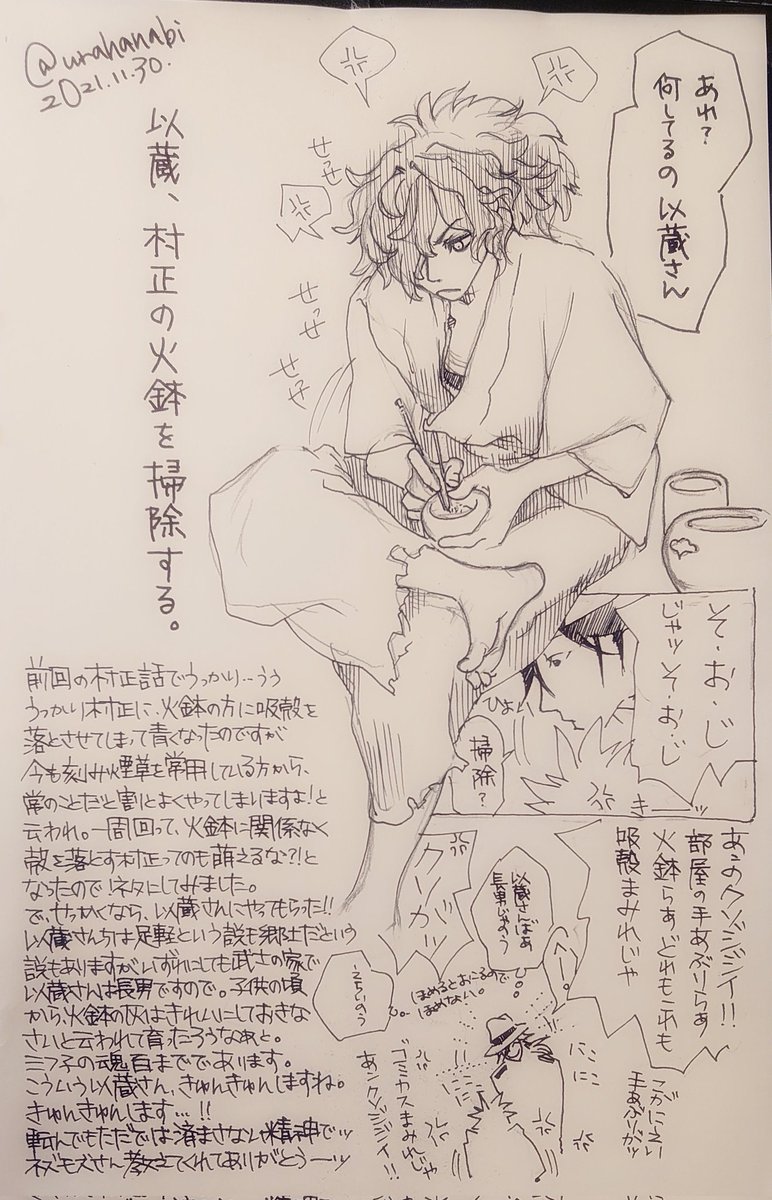 @urahanabi
2021.11.30.
以蔵、村正の火鉢を掃除する。
あれ?
何してるの以蔵さん
せっせ
せっせ
せっせ
そ・お・じ
じゃッそ・お・じ
ひょい
掃除?
きーッ
あンのクソジジイ!!
部屋の手あぶりらぁ
火鉢らぁどれもこれも
吸殻まみれじゃ
クーがッ
以蔵さんはあ
長男じゃのう
へー。
ほめるとおこるので
ほめない。
にこ
にこ
こがにえい
手あぶりがッ
ゴミカスまみれじゃ
あンクソジジイ!!
前回の村正話でうっかり…うう
うっかり村正に、火鉢の方に吸殻を
落とさせてしまって青くなったのですが
今も刻み煙草を常用している方から、
常のことだと割とよくやってしまいますよ!と
云われ。一周回って、火鉢に関係なく
殻を落とす村正ってのも萌えるな?!と
なったので!ネタにしてみました。
で、せっかくなら、以蔵さんにやってもらった!!
以蔵さんちは足軽という説も郷士だという
説もありますがいずれにしても武士の家で
以蔵さんは長男ですので。子供の頃
から、火鉢の灰はきれいにしておきな
さいと云われて育ったろうなぁと。
三つ子の魂百までであります。
こういう以蔵さん、きゅんきゅんしますね。
きゅんきゅんします…!!
転んでもただでは済まさない精神でッ
ネズモズさん教えてくれてありがとうーッ